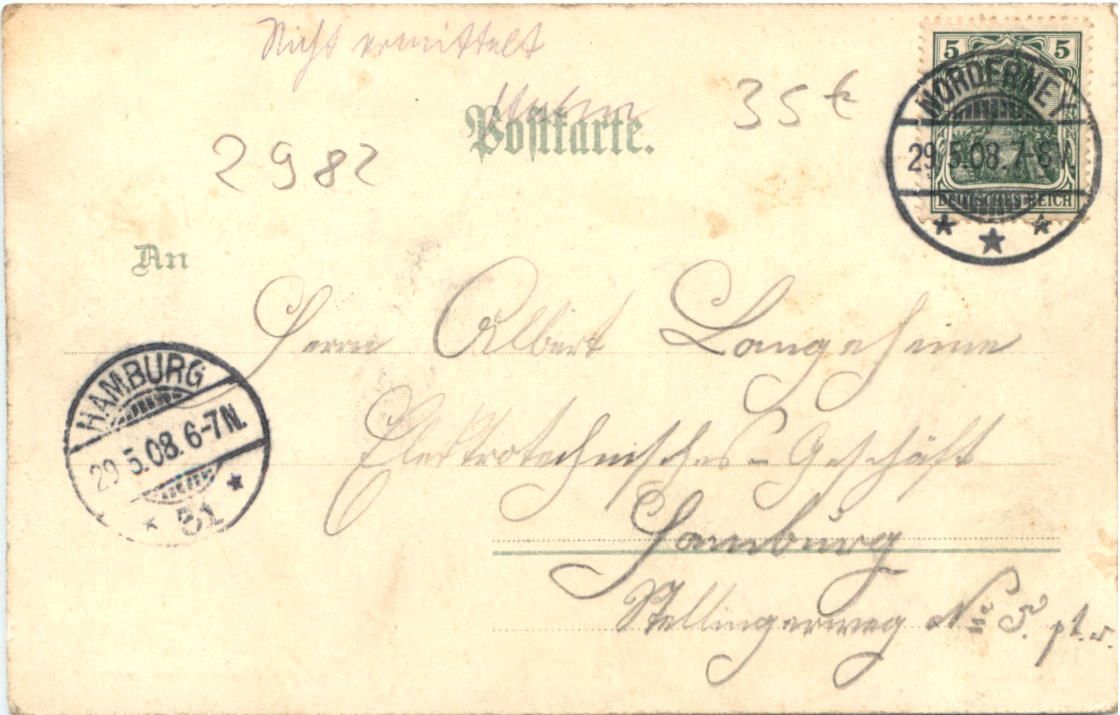 Nicht ermittelt
35 €
Postkarte.
2982
5 5
DEUTSCHES REICH
NORDERNEY
29.5.08.7-8
An
Herrn Albert Langeheine
Elektrotechnisches-Geschäft
Hamburg
Stellingerweg No 5. pt. r.
HAMBURG
29.5.08.6-7N.
* 51 *